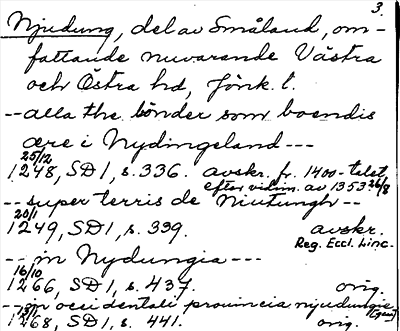 3.
Njudung, del av Småland, om-
fattande nuvarande Västra
och Östra hd, Jönk. l.
-- alla the bönder som boendis
ære i Nydingeland ---
25/12
1248, SD1, s. 336. avskr. fr. 1400-talet
efter vidim. av 1353 26/8
-- super terris de Niutungh --
20/1
1249, SD1, s. 339. avskr.
Reg. Eccl. Linc.
-- in Nydungia ---
16/10
1266, SD1, s. 437. orig.
-- in occidentali prouincia njudungie
1268, SD1, s. 441. orig.